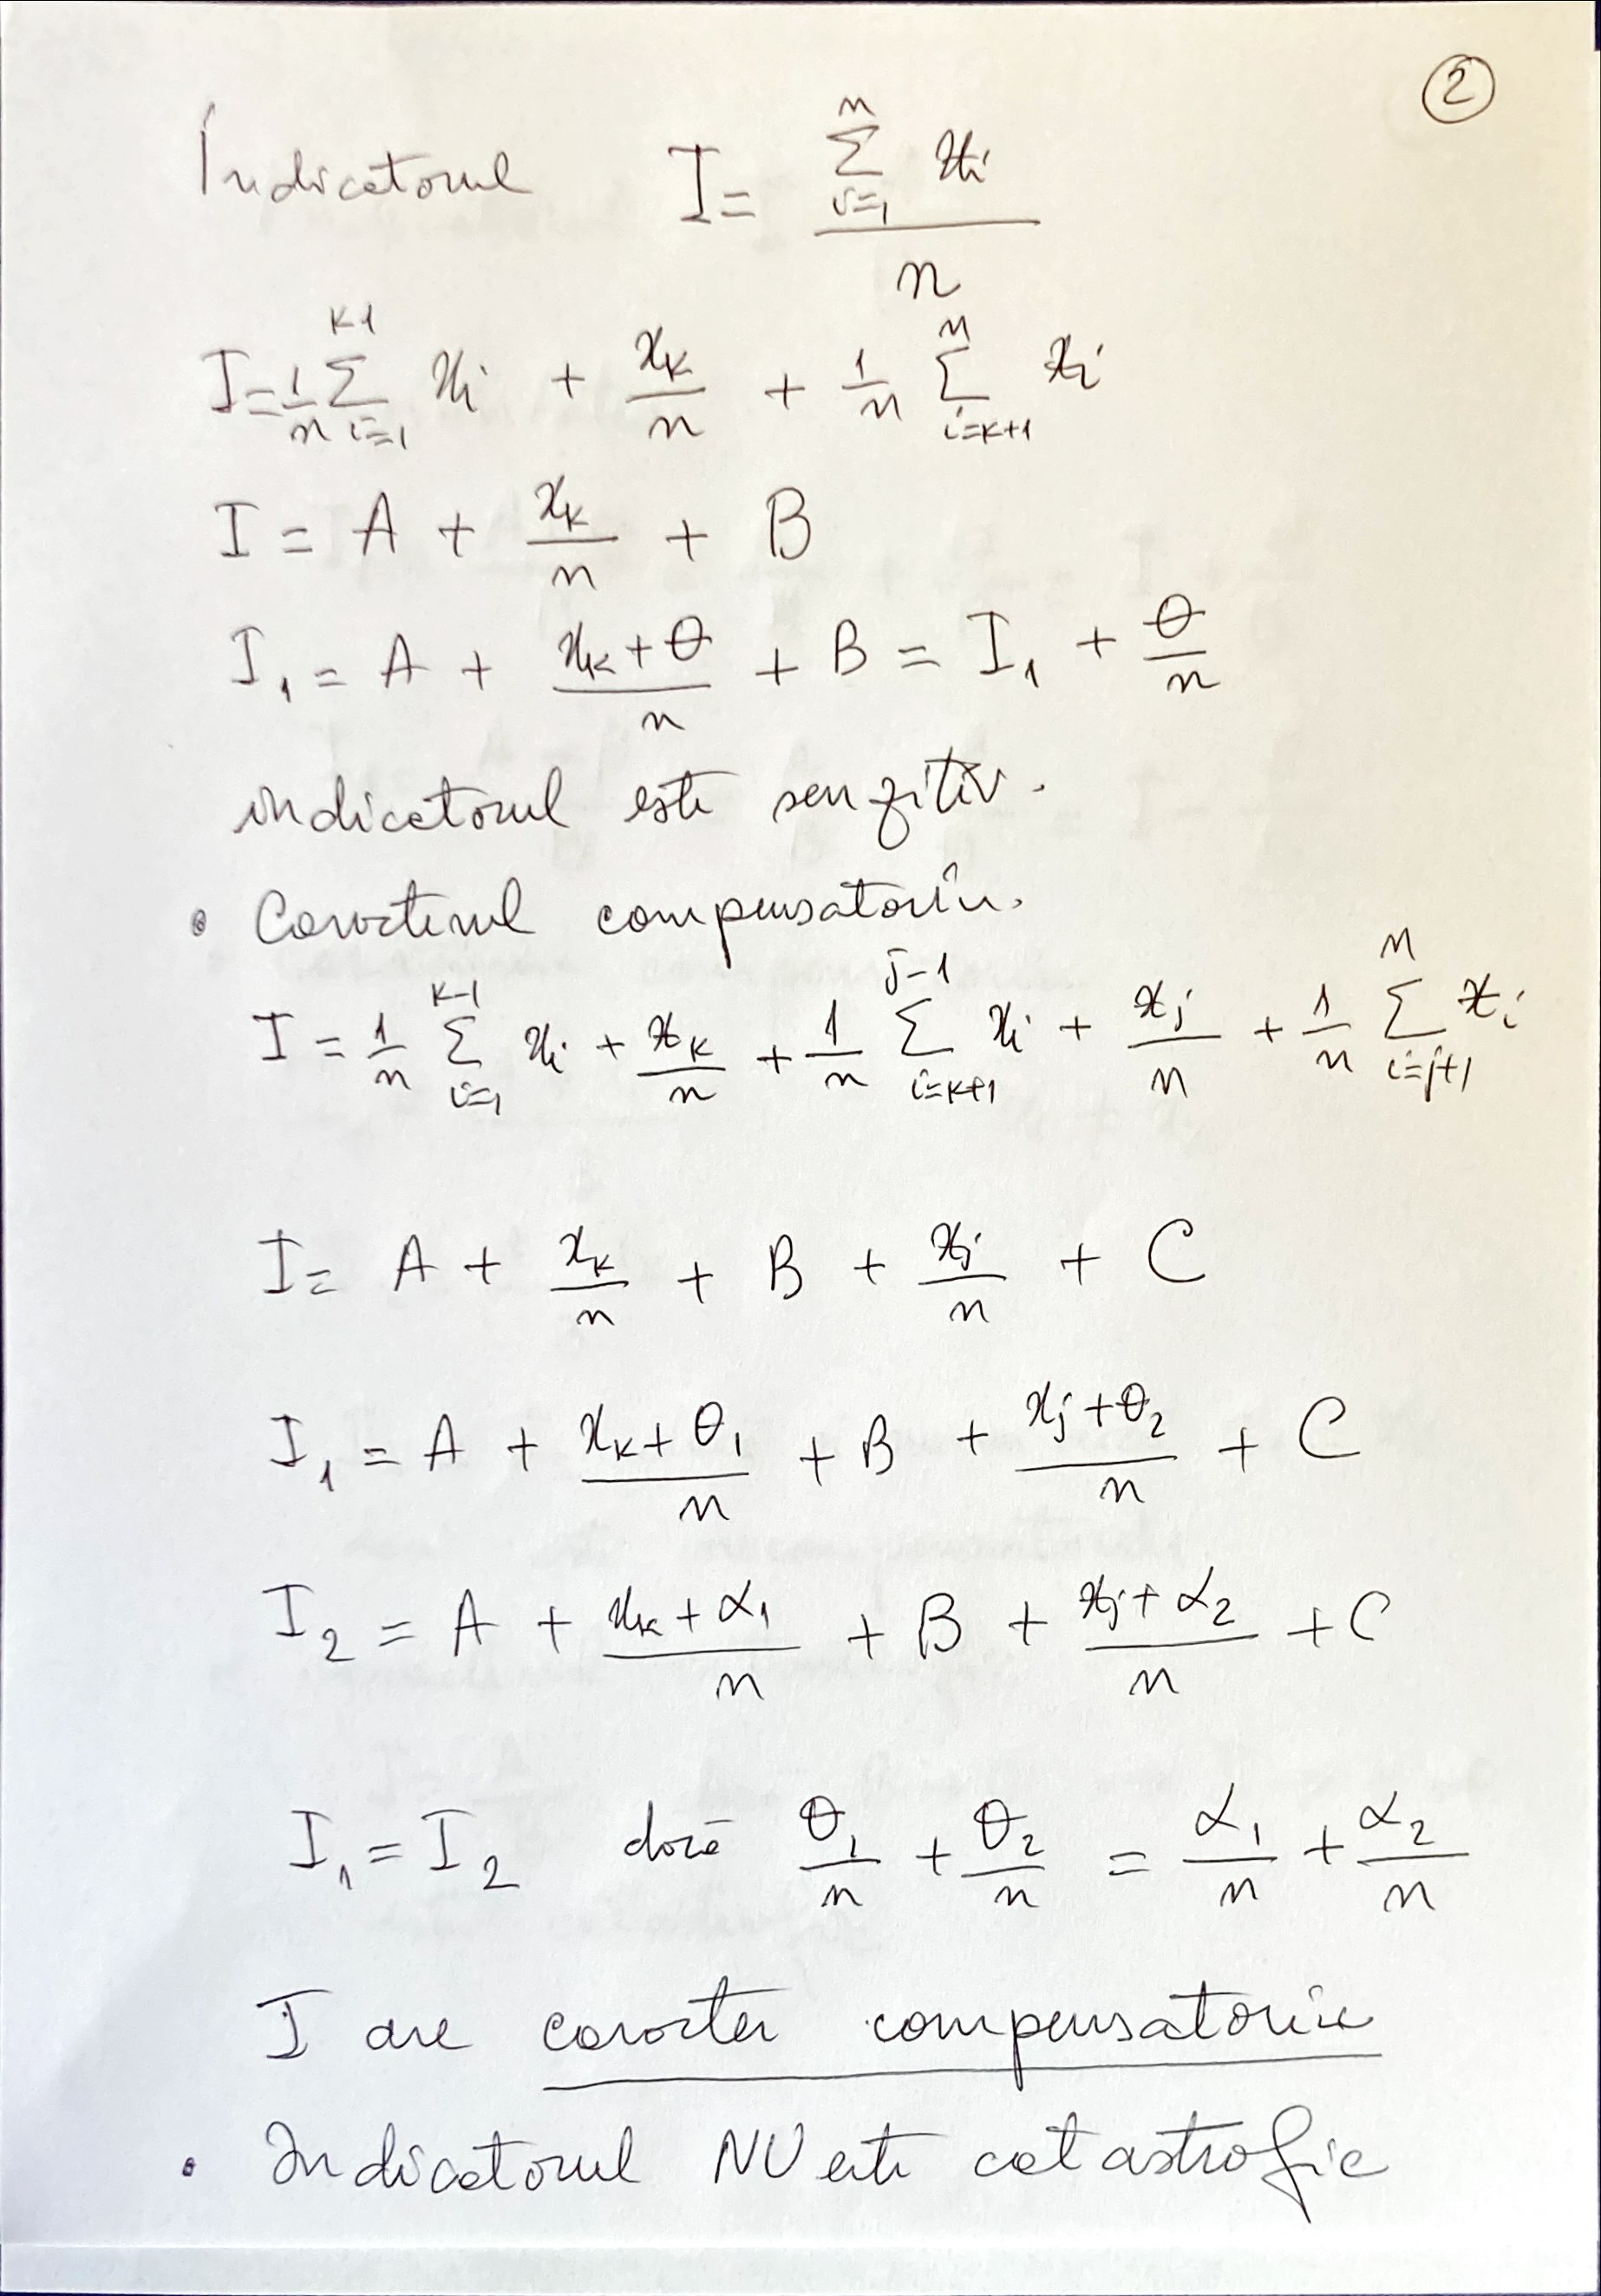 ②
Indicatorul I = \frac{\sum_{i=1}^{n} x_i}{n}
I = \frac{1}{n} \sum_{i=1}^{k-1} x_i + \frac{x_k}{n} + \frac{1}{n} \sum_{i=k+1}^{n} x_i
I = A + \frac{x_k}{n} + B
I_1 = A + \frac{x_k + θ}{n} + B = I_1 + \frac{θ}{n}
indicatorul este senzitiv.
• Caracterul compensatoriu.
I = \frac{1}{n} \sum_{i=1}^{k-1} x_i + \frac{x_k}{n} + \frac{1}{n} \sum_{i=k+1}^{j-1} x_i + \frac{x_j}{n} + \frac{1}{n} \sum_{i=j+1}^{n} x_i
I = A + \frac{x_k}{n} + B + \frac{x_j}{n} + C
I_1 = A + \frac{x_k + θ_1}{n} + B + \frac{x_j + θ_2}{n} + C
I_2 = A + \frac{x_k + α_1}{n} + B + \frac{x_j + α_2}{n} + C
I_1 = I_2 dacă \frac{θ_1}{n} + \frac{θ_2}{n} = \frac{α_1}{n} + \frac{α_2}{n}
I are caracter compensatoriu
• Indicatorul NU este catastrofic